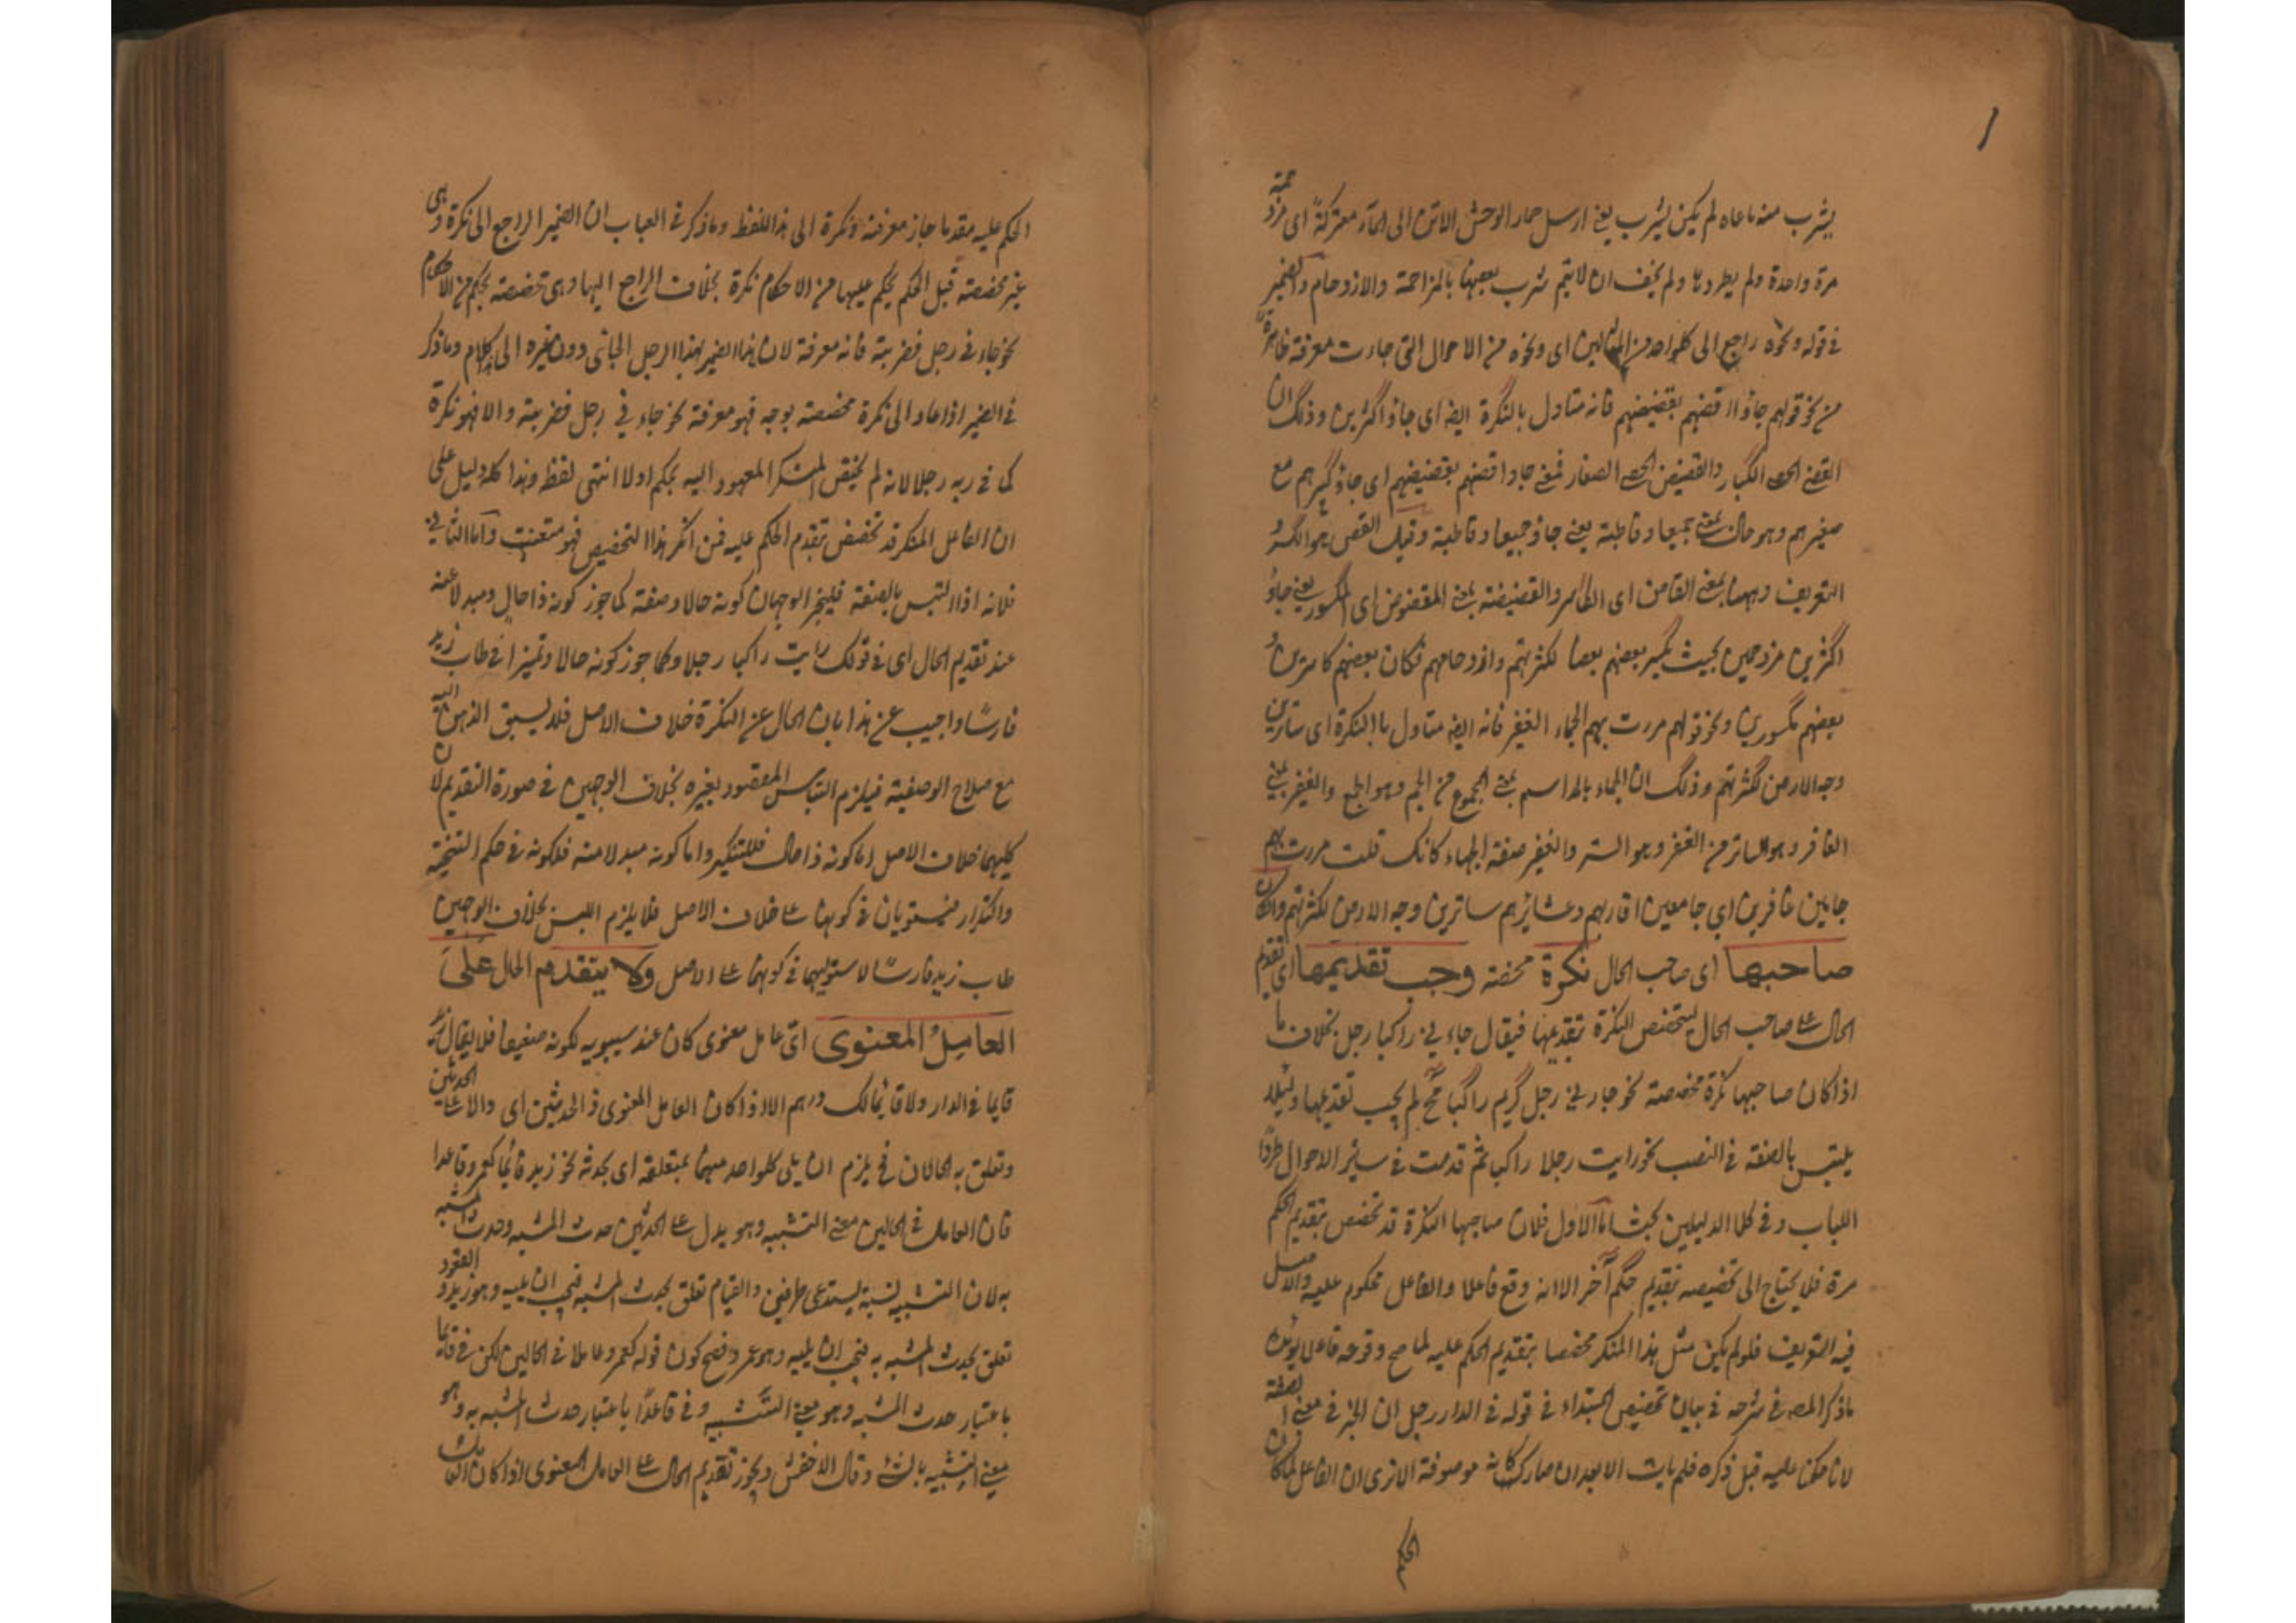 يشرب منه ما عاه لم يكن يشرب يعنى ارسل حمار الوحش الاتن الى الماء معتركة اى مزدحمة
مرة واحدة ولم يطردها ولم يخف ان لا يتم شرب بعضها بالمزاحمة والازدحام والضمير
فى قوله ونحوه راجع الى كلواحد من المثالين اى ونحوه من الاحوال التى جاءت معرفة ظاهرة
من نحو قولهم جاؤا قضهم بقضيضهم فانه متاول بالنكرة ايضا اى جاؤا كثيرين وذلك ان
القض الحصا الكبار والقضيض الحصا الصغار فمعنى جاؤا قضهم بقضيضهم اى جاؤ كبيرهم مع
صغيرهم وهو حال بمعنى جميعا وقاطبة يعنى جاؤ جميعا وقاطبة وقيل القض هو الكسر و
التعريف وههنا بمعنى القاض اى الكاسر والقضيضة بمعنى المقضوض اى المكسور يعنى جاؤ
اكثرين مزدحمين بحيث يكسر بعضهم بعضا لكثرتهم وازدحامهم فكان بعضهم كاسرين و
بعضهم مكسورين ونحو قولهم مررت بهم الجماء الغفير فانه ايضا متاول بالنكرة اى ساترين
وجه الارض لكثرتهم وذلك ان الجماء بالمد اسم بمعنى الجموع من الجم وهو الجمع والغفير بمعنى
الغافر وهو الساتر من الغفر وهو الستر والغفير صفة الجماء كانك قلت مررت بهم
جامين غافرين اي جامعين اقاربهم وعشائرهم ساترين وجه الارض لكثرتهم وان كان
صاحبها اى صاحب الحال نكرة محضة وجب تقديمها اى تقديم
الحال على صاحب الحال ليتخصص النكرة بتقديمها فيقال جاءنى راكبا رجل بخلاف ما
اذا كان صاحبها نكرة مخصصة نحو جاءنى رجل كريم راكبا فح لم يجب تقديمها ولئلا
يلتبس بالصفة فى النصب نحو رايت رجلا راكبا ثم قدمت فى سائر الاحوال طردا
اللباب وفى كلا الدليلين بحث اما الاول فلان صاحبها النكرة قد تخصص بتقديم الحكم
مرة فلا يحتاج الى تخصيصه بتقديم حكم آخر الا انه وقع فاعلا والفاعل محكوم عليه والاصل
فيه التعريف فلو لم يكن مثل هذا المنكر مخصصا بتقديم الحكم عليه لما صح وقوعه فاعلا يؤيده
ماذكر المص فى شرحه فى بيان تخصيص المبتداء فى قوله فى الدار رجل ان الخبر فى معنى الصفة
لانا حكمنا عليه قبل ذكره فلم يات الا بعد ان صار كانه موصوفة الا ترى ان الفاعل لما كان
الحكم
الحكم عليه مقدما جاز معرفة ونكرة الى هذا اللفظ وماذكر فى العباب ان الضمير الراجع الى نكرة وهى
غير مخصصة قبل الحكم يحكم عليها من الاحكام نكرة بخلاف الراجع اليها وهى تخصصة بحكم من الاحكام
نحو جاءنى رجل فضربته فانه معرفة لان هذا الضمير لهذا الرجل الجائى دون غيره الى كلام وماذكر
فى الضمير اذا عاد الى نكرة مخصصة بوجه فهو معرفة نحو جاءنى رجل فضربته والا فهو نكرة
كما فى ربه رجلا لانه لم يختص المنكر المعهود اليه بحكم اولا انتهى لفظه وهذا كله دليل على
ان الفاعل المنكر قد تخصص بتقدم الحكم عليه فمن انكر هذا التخصيص فهو متعنت واما الثانى
فلانه اذا التبس بالصفة فليجز الوجهان كونه حالا وصفة كما جوز كونه ذا حال ومبدلا عنه
عند تقديم الحال اى فى قولك رايت راكبا رجلا وكما جوز كونه حالا وتميزا فى طاب زيد
فارسًا واجيب عن هذا بان الحال عن النكرة خلاف الاصل فلا يسبق الذهن اليه
مع صلاح الوصفية فيلزم التباس المقصود بغيره بخلاف الوجهين فى صورة التقديم لان
كليهما خلاف الاصل اما كونه ذا حال فللتنكير واما كونه مبدلا منه فلكونه فى حكم التنحية
والتكرار فيستويان فى كونهما على خلاف الاصل فلا يلزم اللبس بخلاف الوجهين
طاب زيد فارسًا لاستوائهما فى كونهما على الاصل ولا يتقدم الحال على
العامل المعنوى اىّ عامل معنوى كان عند سيبويه لكونه ضعيفا فلا يقال زيد
قائما فى الدار ولا قائما لك درهم الا اذا كان العامل المعنوى ذا الحدثين اى دالا على الحدثين
وتعلق به الحالان فح يلزم ان يلى كلواحد منهما بمتعلقه اى بحدثه نحو زيد قائما كعمرو قاعدا
فان العامل فى الحالين معنى التشبيه وهو يدل على الحدثين حدث المشبه وحدث المشبه
به لان التشبيه نسبة يستدعى طرفين والقيام تعلق بحدث المشبه فيجب ان يليه وهو زيد والقعود
تعلق بحدث المشبه به فيجب ان يليه وهو عمرو فصح كون قوله كعمرو عاملا فى الحالين لكن فى قائما
باعتبار حدث المشبه وهو معنى التشبيه وفى قاعدًا باعتبار حدث المشبه به وهو
معنى التشبيه بالشئ وقال الاخفش ويجوز تقديم الحال على العامل المعنوى اذا كان العامل